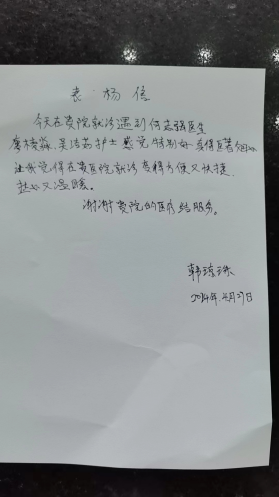 表扬信
今天在贵院就诊遇到何志强医生
唐棱淼、吴洁茹护士感觉特别好 看得医著
让我觉得在贵医院就诊变得方便又快捷
贴心又温暖。
谢谢贵院的医疗结服务。
韩琼珠
2024年4月27日